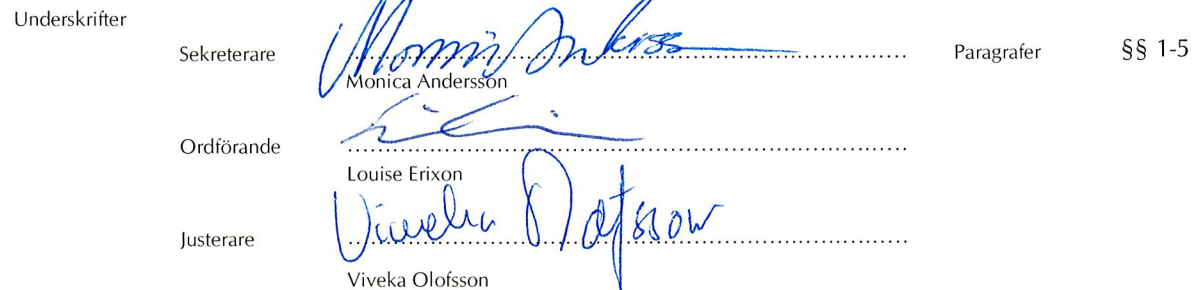 Underskrifter
Sekreterare Paragrafer §§ 1-5
Monica Andersson
Ordförande
Louise Erixon
Viveka Olofsson
Justerare
Viveka Olofsson